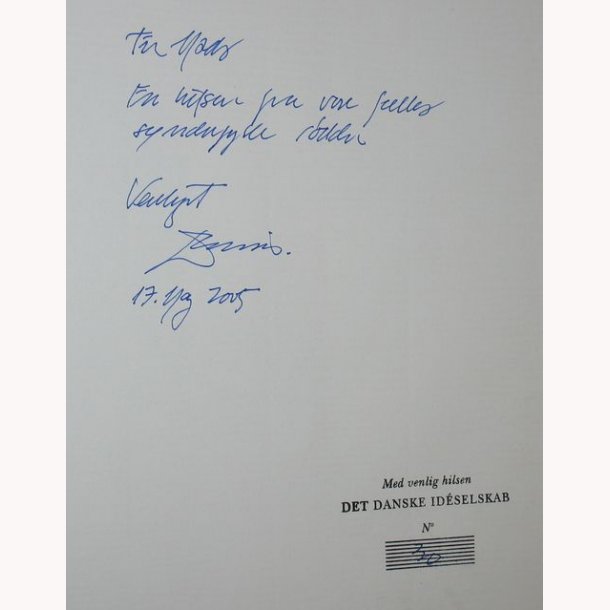 Til Mads
En hilsen fra vore fælles
syndefulde rødder
Venligst
Dennis.
17. Maj 2005
Med venlig hilsen
DET DANSKE IDÉSELSKAB
Nº
30